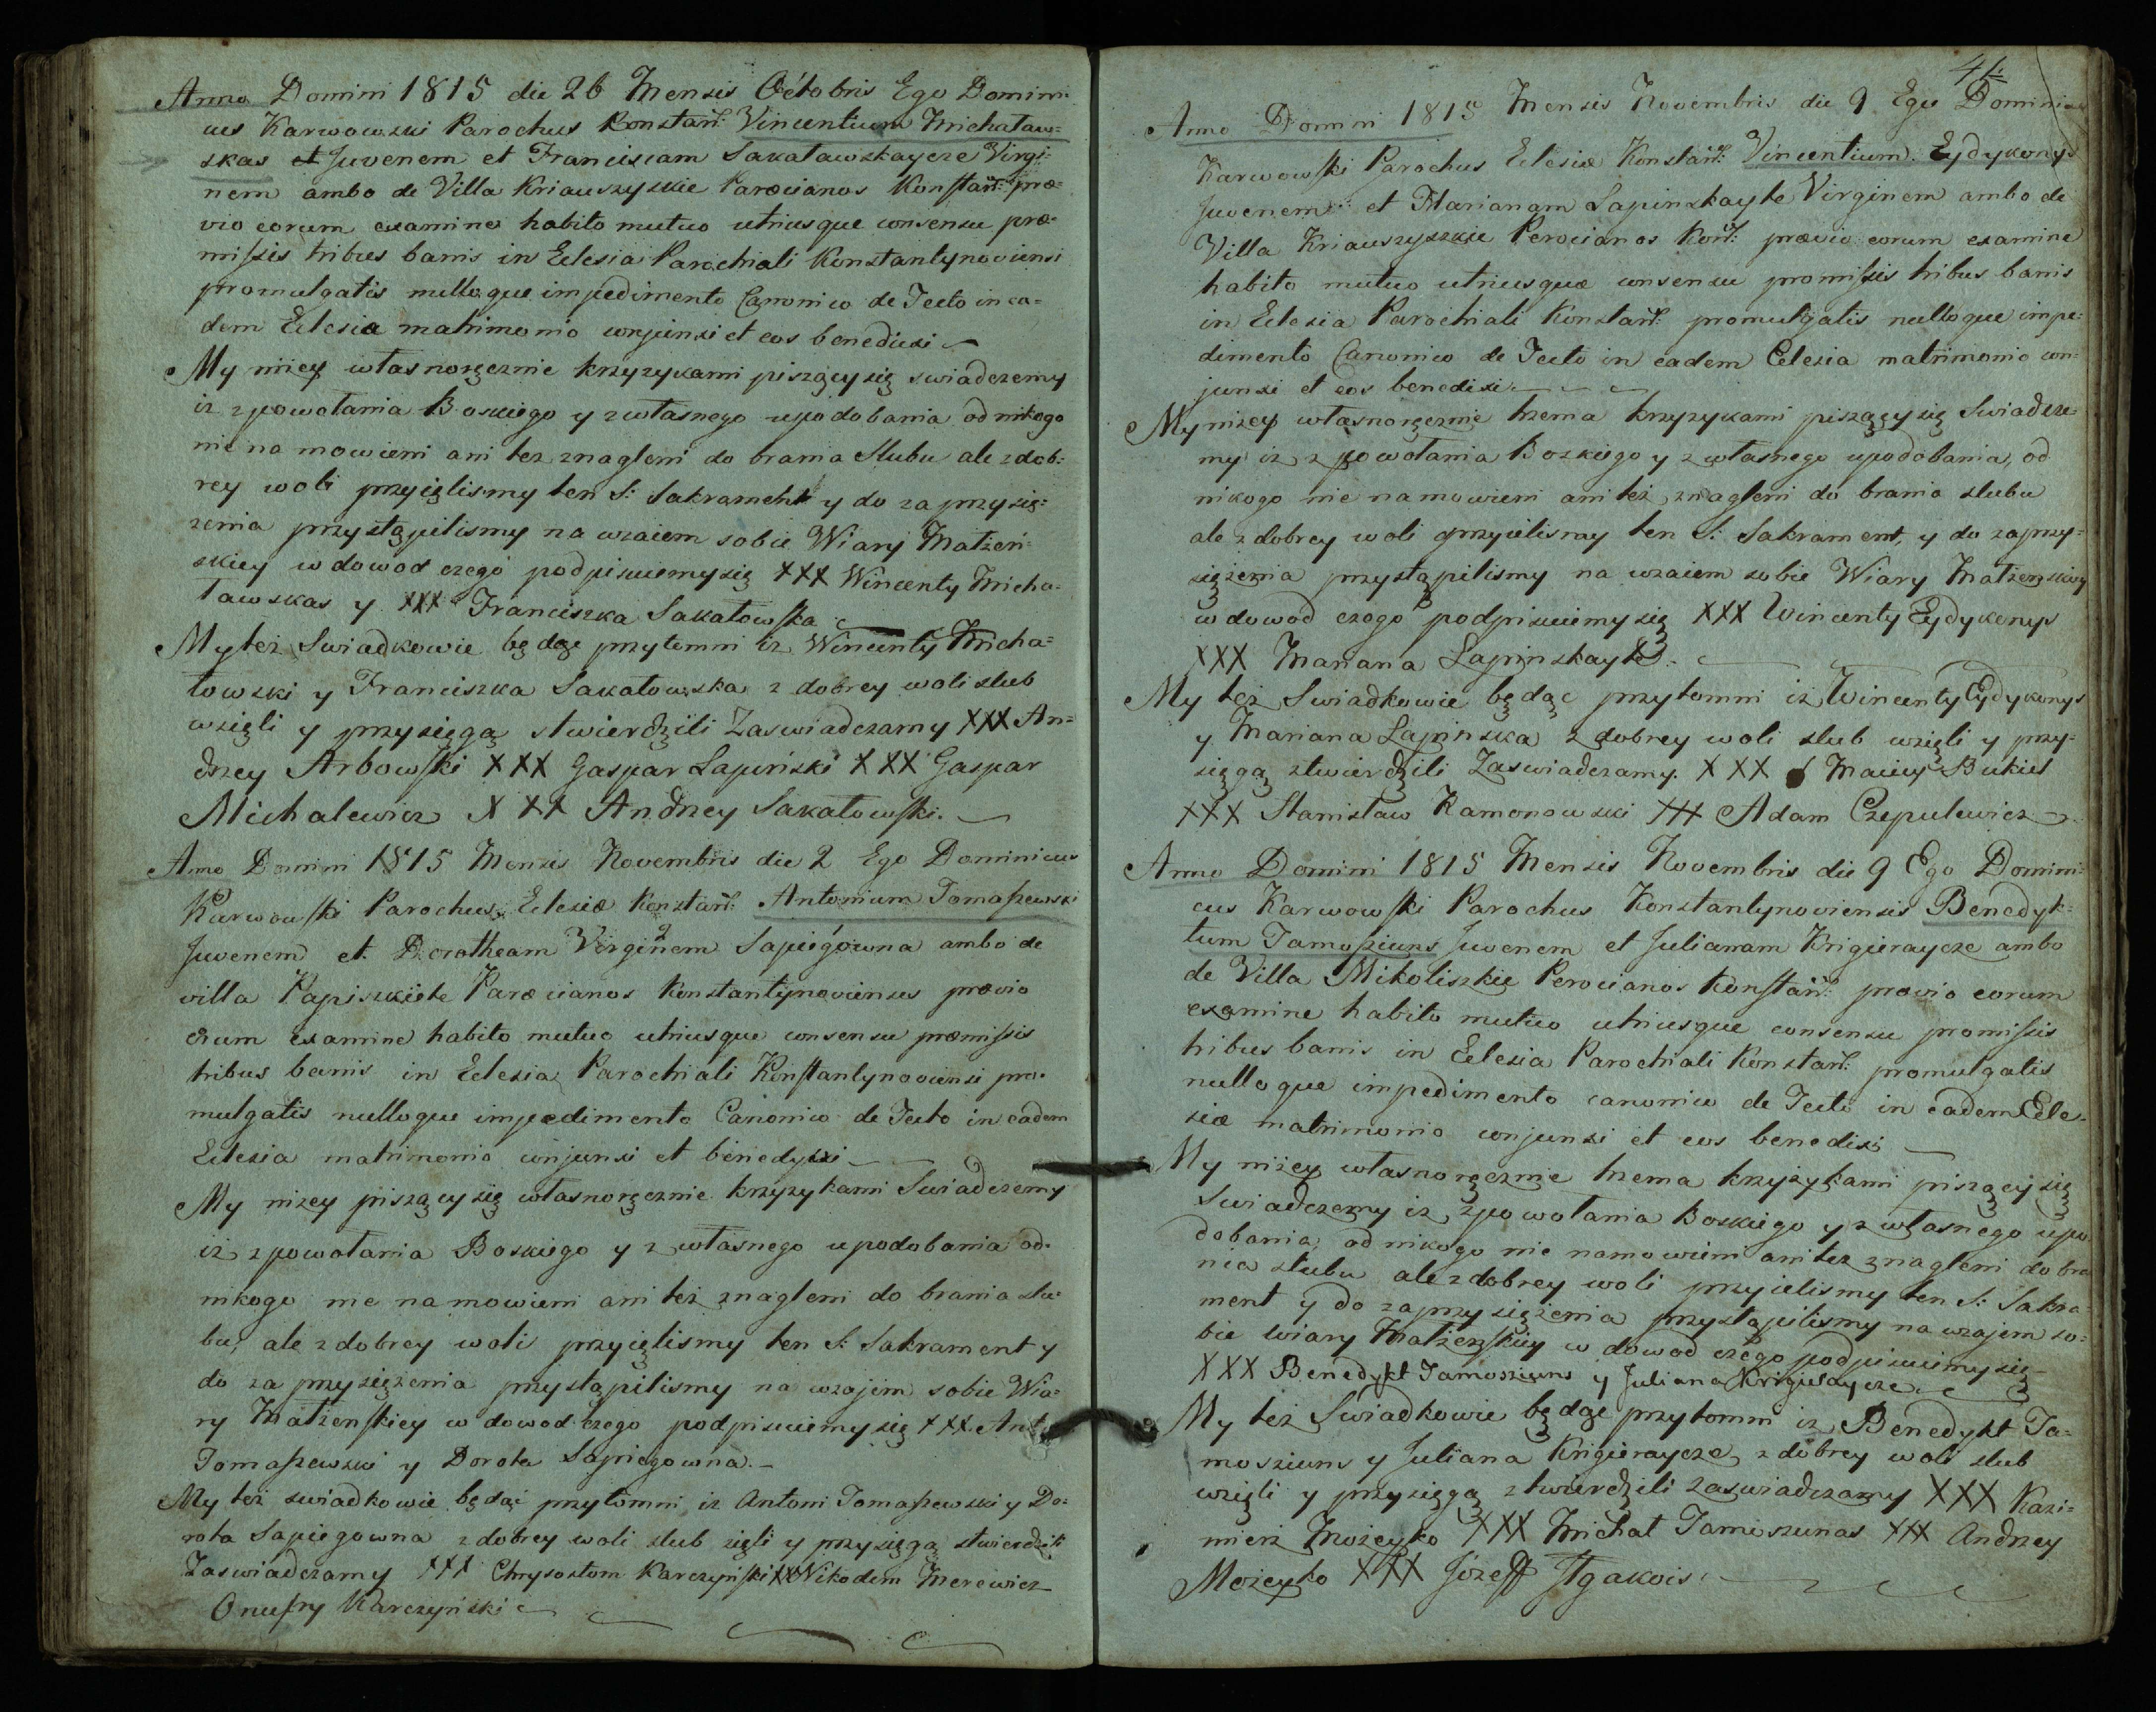 Anno Domini 1815 die 26 Mensis Octobris Ego Domini
cus Karwowski Parochus Konstań: Vincentium Michaław=
skas et Juvenem et Franciscam Sakaławskaycze Virgi=
nem ambo de Villa Kriauszyskie Parœcianos Konstań: præ=
vio eorum examine habito mutuo utriusque consensu præ=
missis tribus banis in Eclesia Parochiali Konstantynoviensi
promulgatis nulloque impedimento Canonico de Tecto in ea=
dem Eclesia matrimonio conjunxi et eos benedixi
My niżey własnoręcznie krzyzykami piszącysię swiadczemy
iz zpowołania Boskiego y zwłasnego upodobania od nikogo
nie na mowieni ani tez znagleni do brania slubu ale zdob:
rey woli przyięlismy ten S: Sakrament y do za przysię:
zenia przystąpilismy na wzaiem sobie Wiary Małzeń=
skiey w dowod czego podpisuiemysię XXX Wincenty Micha=
ławskas y XXX Franciszka Sakałowska
My tez Swiadkowie będąc przytomni iz Wincenty Micha=
łowski y Franciszka Sakałowska z dobrey woli slub
wzięli y przysięgą stwierdzili Zaswiadczamy XXX An=
drzey Arbowski XXX Gaspar Łapiński XXX Gaspar
Michalewicz XXX Andrzey Sakałowski.
Anno Domini 1815 Mensis Novembris die 2 Ego Dominicus
Karwowski Parochus Eclesiæ Konstań: Antonium Tomaszewski
Juvenem et Dorotheam Virginem Sapiegówna ambo de
villa Papiszkiete Parœcianos Konstantynovienses prævio
eorum examine habito mutuo utriusque consensu præmissis
tribus banis in Eclesia Parochiali Konstantynoviensi pro=
mulgatis nulloque impedimento Canonico de Tecto in eadem
Eclesia matrimonio conjunxi et benedyxi
My nizey piszącysię własnoręcznie krzyzykami Swiadczemy
iż zpowołania Boskiego y z własnego upodobania od=
nikogo nie namowieni ani też znagleni do brania slu=
bu, ale z dobrey woli przyięlismy ten S: Sakrament y
do za przysiężenia przystąpilismy na wzajem sobie Wia=
ry Małżenskiey w dowod czego podpisuiemysię XXX Ant
Tomaszewski y Dorota Sapiegowna.
My też swiadkowie będąc przytomni iz Antoni Tomaszewski y Do=
rota Sapiegowna z dobrey woli slub zięli y przysięgą stwierdzili
Zaswiadczamy XXX Chrysostom Karczyński XX Nikodem Merewicz
Onufry Karczyński
Anno Domini 1815 Mensis Novembris die 9 Ego Dominicus
Karwowski Parochus Eclesiæ Konstań: Vincentium Eydykonys
Juvenem et Mariannam Łapinskayte Virginem ambo de
Villa Kriauszyszkie Perocianos Koń: prævio eorum examine
habito mutuo utriusquæ consensu promissis tribus banis
in Eclesia Parochiali Konstań: promulgatis nulloque impe:
dimento Canonico de Tecto in eadem Eclesia matrimonio con=
junxi et eos benedixi
My nizey własnoręcznie trzema krzyzykami piszącysię Swiadcze
my iz z powołania Bozkiego y z własnego upodobania, od
nikogo nie namowieni ani też znagleni do brania slubu
ale z dobrey woli przyielismy ten S: Sakrament, y do zaprzy=
siężenia przystąpilismy na wzaiem sobie Wiary Małżenskiey
w dowod czego podpisuiemysię XXX Wincenty Eydykonys
XXX Mariana Łapinskayte.
My też Swiadkowie będąc przytomni iż Wincenty Eydykonys
y Mariana Łapinska z dobrey woli slub wzięli y przy=
sięgą stwierdzili Zaswiadczamy. XXX Maciey Bukiel
XXX Stanisław Ramonowski XXX Adam Czepulewicz
Anno Domini 1815 Mensis Novembris die 9 Ego Domini=
cus Karwowski Parochus Konstantynoviensis Benedyk=
tum Tamosziuns Juvenem et Julianam Krigieraycze ambo
de Villa Mikoliszkie Perocianos Konstań: prævio eorum
examine habito mutuo utriusque consensu promissis
tribus banis in Eclesia Parochiali Konstań: promulgatis
nulloque impedimento canonico de Tecto in eadem Ecle=
siæ matrimonio conjunxi et eos benedixi
My niżey własnoręcznie trzema krzyżykami piszącysię
Swiadczemy iz zpowołania Boskiego y z własnego upo=
dobania, od nikogo nie namowieni ani tez znagleni do bra
nia slubu ale z dobrey woli przyielismy ten S: Sakra=
ment y do zaprzysiężenia przystąpilismy na wzajem so=
bie wiary Małżenskiey w dowod czego podpisuiemysię
XXX Benedykt Tamosziuns y Juliana Krigieraycze
My też Swiadkowie będąc przytomni iz Benedykt Ta=
mosziuns y Juliana Krigieraycze, z dobrey woli slub
wzięli y przysięgą ztwierdzili zaswiadczamy XXX Kazi=
mierz Możeyko XXX Michał Tamiszunas XXX Andrzey
Możeyko XXX Józeff